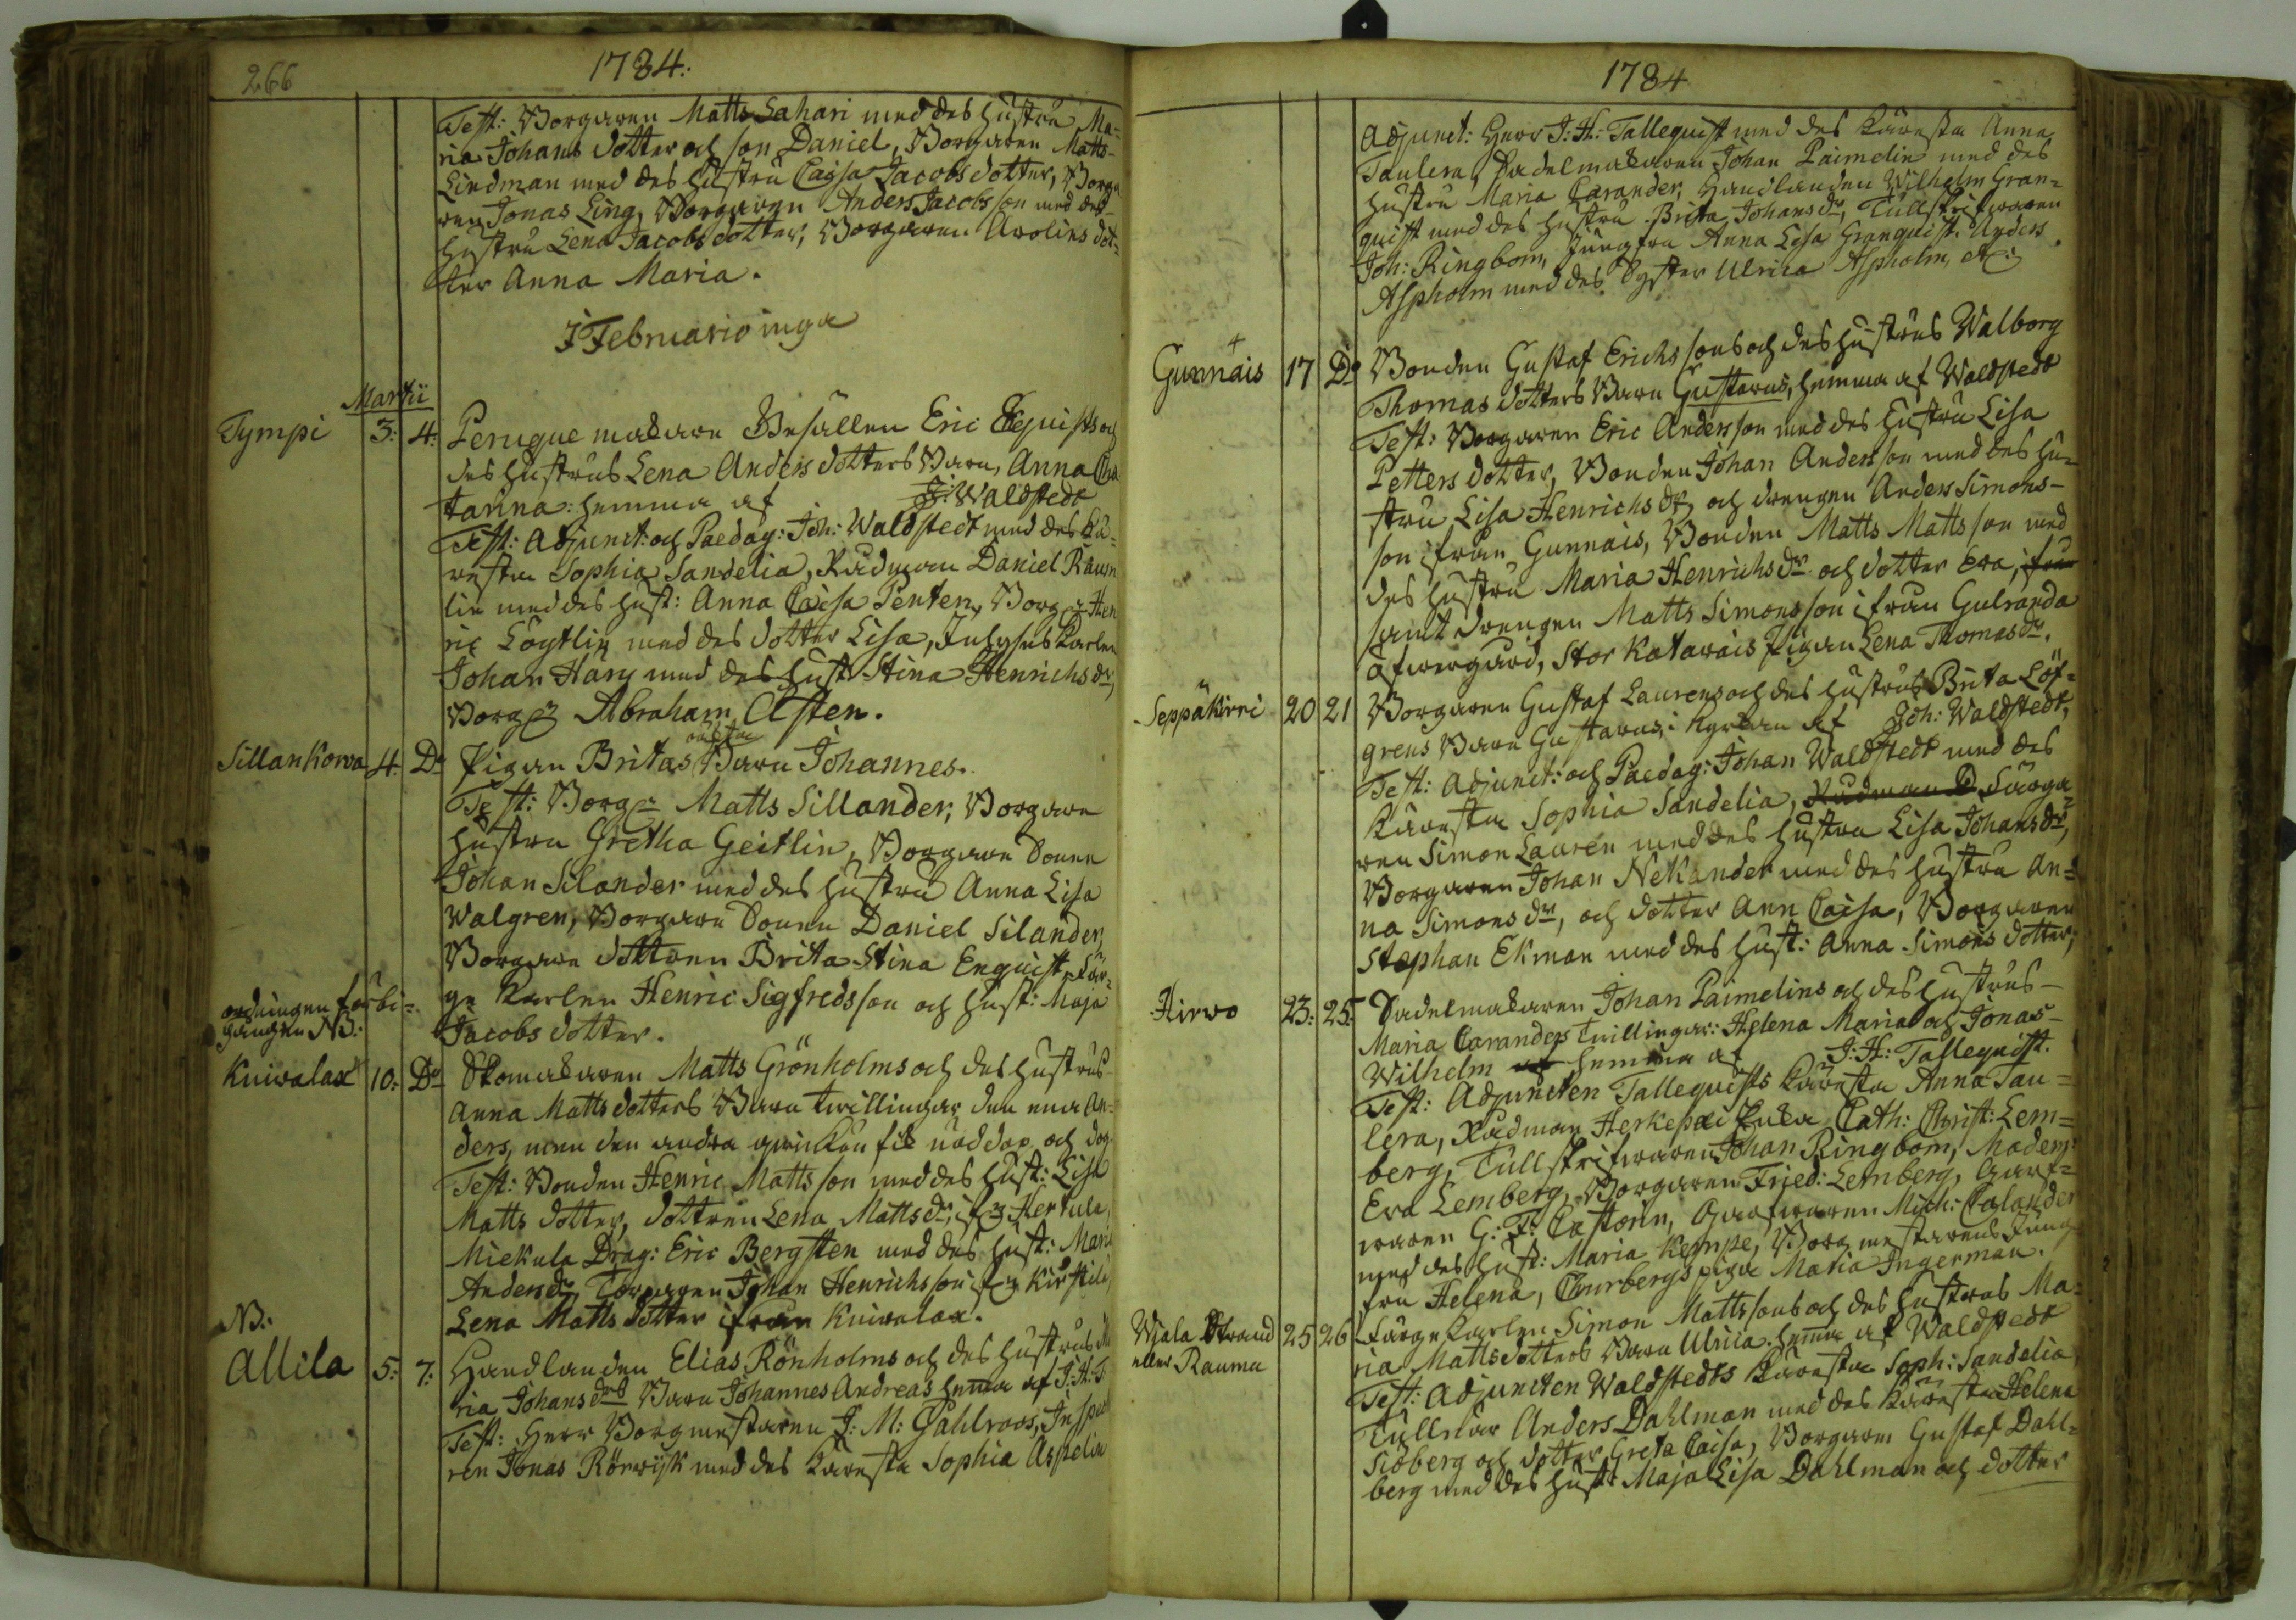 266
1784:
Test: Borgaren Matts Lahari med des hustru Ma=
ria Johans dotter och son Daniel, Borgaren Matts
Lindman med des hustru Caisa Jacobs dotter, Borga
ren Jonas Ling, Borgaren Anders Jacobsson med des
hustru Lena Jacobs dotter, Borgaren Arolins dot=
ter Anna Maria.
I Februario inga
Martii
Tympi 3: 4: Peruque makare Gesällen Eric Eequists och
des hustrus Lena Anders dotters Barn, Anna Cha
tarina: hemma af J: Waldstedt
Test: Adjunct: och Paedag: Joh: Waldstedt med des kä=
resta Sophia Sandelia, Rådman Daniel Raum
lin med des hust: Anna Caisa Penten, Borg: Hen
ric Lögtlin med des dotter Lisa, Inhyses karlen
Johan Harj med des hust: Stina Henrichs dr,
Borg: Abraham Asten.
Sillankorva 4: Do Pigan Britas oäkta Barn Johannes.
Test: Borg: Matts Sillander, Borgare
hustru Gretha Geitlin, Borgare Sonen
Johan Silander med des hustru Anna Lisa
Walgren, Borgare Sonen Daniel Silander,
Borgare dottren Brita Stina Enquist, Fär=
ge karlen Henric Sigfredsson och hust: Maja
Jacobs dotter.
ordningen förbi=
gången NB:
Kuivalax 10: Do Skomakaren Matts Grönholms och des hustrus
Anna Matts dotters Barn twillingar den ena An=
ders, men den andra qwinkön fik nöddop och dog
Test: Bonden Henric Mattsson med des hust: Lisa
Matts dotter, dottren Lena Matts dr, ifr: Hertula,
Miekula Drag: Eric Bergsten med des hust: Maria
Anders dr, Torparen Johan Henrichsson ifr: Kirstila,
Lena Matts dotter ifrån Kuivalax.
NB:
Allila 5: 7: Handlanden Elias Rönholms och des hustrus Ma
ria Johans drs Barn Johannes Andreas hema af J: H: T:
Test: Herr Borgmestaren J: M: Pahlroos, Inspect
ren Jonas Rörwijk med des käresta Sophia Aspelin
1784
Adjunct: Herr J: H: Tallequist med des käresta Anna
Taulera, Sadelmakaren Johan Paimelin med des
hustru Maria Carander, Handlanden Wilhelm Gran=
quist med des hustru Brita Johans dr, Tullskrifwaren
Joh: Ringbom, Jungfru Anna Lisa Granquist. Anders
Aspholm med des Syster Ulrica Aspholm, etc:
Gunnais 17 Do Bonden Gustaf Erichssons och des hustrus Walborg
Thomas dotters Barn Gustavus, hemma af Waldstedt
Test: Borgaren Eric Andersson med des hustru Lisa
Petters dotter, Bonden Johan Andersson med des hu=
stru Lisa Henrichs dr, och drengen Anders Simons-
son ifrån Gunnais, Bonden Matts Mattsson med
des hustru Maria Henrichs dr och dotter Eva, ifrån
samt drengen Matts Simonsson ifrån Gulranda
öfwergård, Stor Katavais Pigan Lena Thomas dr.
Seppäkivi 20 21 Borgaren Gustaf Laurens och des hustrus Brita Löf=
grens Barn Gustavus, i kyrkan af Joh: Waldstedt,
Test: Adjunct: och Paedag: Johan Waldstedt med des
käresta Sophia Sandelia, Rådman D Färga
ren Simon Lauren med des hustru Lisa Johans dr,
Borgaren Johan Nekander med des hustru An=
na Simons dr, och dotter Ann Caisa, Borgaren
Stephan Ekman med des hust: Anna Simons dotter,
Hirvo 23: 25: Sadelmakaren Johan Paimelins och des hustrus
Maria Caranders twillingar: Helena Maria och Jonas
Wilhelm hemma af J: H: Tallequist.
Test: Adjuncten Tallequists käresta Anna Tau=
lera, Rådman Herkepæi Enka Cath: Christ: Lem=
berg, Tullskrifwaren Johan Ringbom, Madem:
Eva Lemberg, Borgaren Fried: Lemberg, Garf=
waren G: F: Castorin, Garfwaren Mich: Calander
med des hust: Maria Kempe, Borgmestarens Jung
fru Helena, Churbergs piga Maria Ingerman.
Wiala Strand 25 26 Färgekarlen Simon Mattssons och des hustrus Ma=
eller Rauma
ria Matts dotters Barn Ulrica hema af Waldstedt
Test: Adjuncten Waldstedts käresta Soph: Sandelia,
Tullnär Anders Dahlman med des käresta Helena
Sidberg och dotter Greta Caisa, Borgaren Gustaf Dahl=
berg med des hust: Maja Lisa Dahlman och dotter